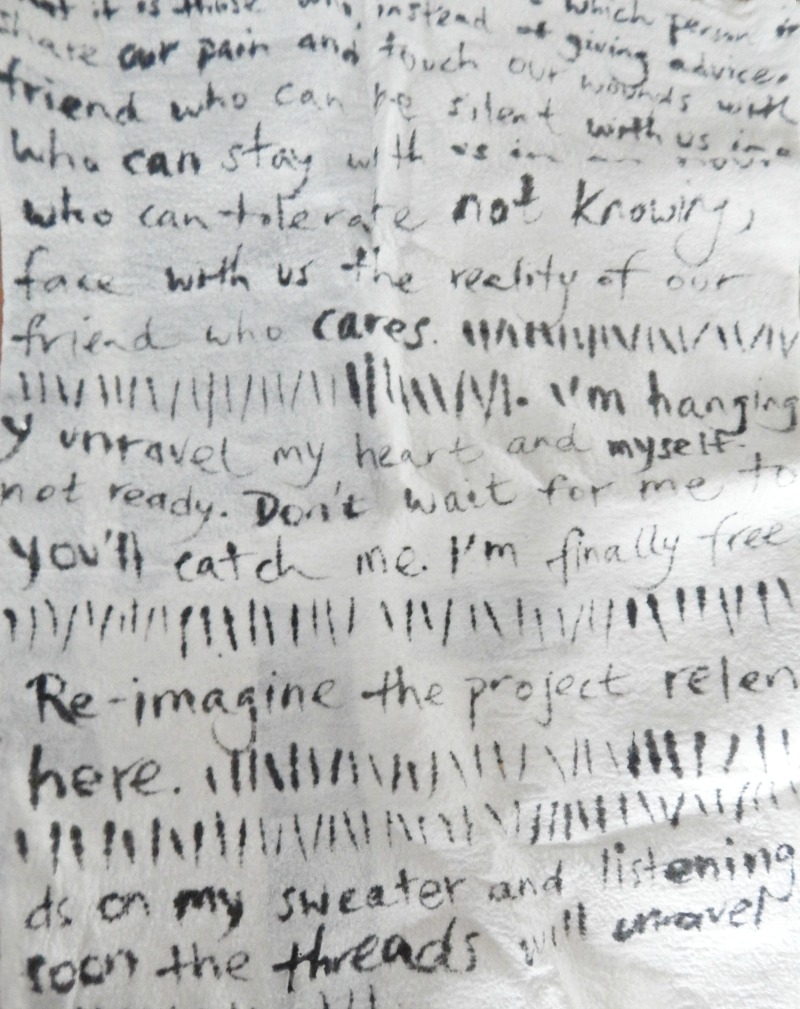 it is those who, instead of giving advice,
which person in
share our pain and touch our wounds with
friend who can be silent with us in a
who can stay with us in an hour
who can tolerate not knowing,
face with us the reality of our
friend who cares.
I'm hanging
y unravel my heart and myself.
not ready. Don't wait for me to
you'll catch me. I'm finally free
Re-imagine the project relen
here.
ds on my sweater and listening
soon the threads will unravel